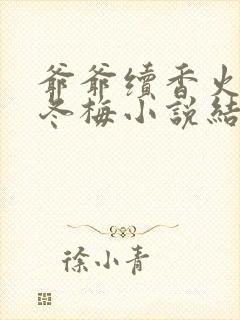 爺爺續香火
冬梅小說結
徐小青